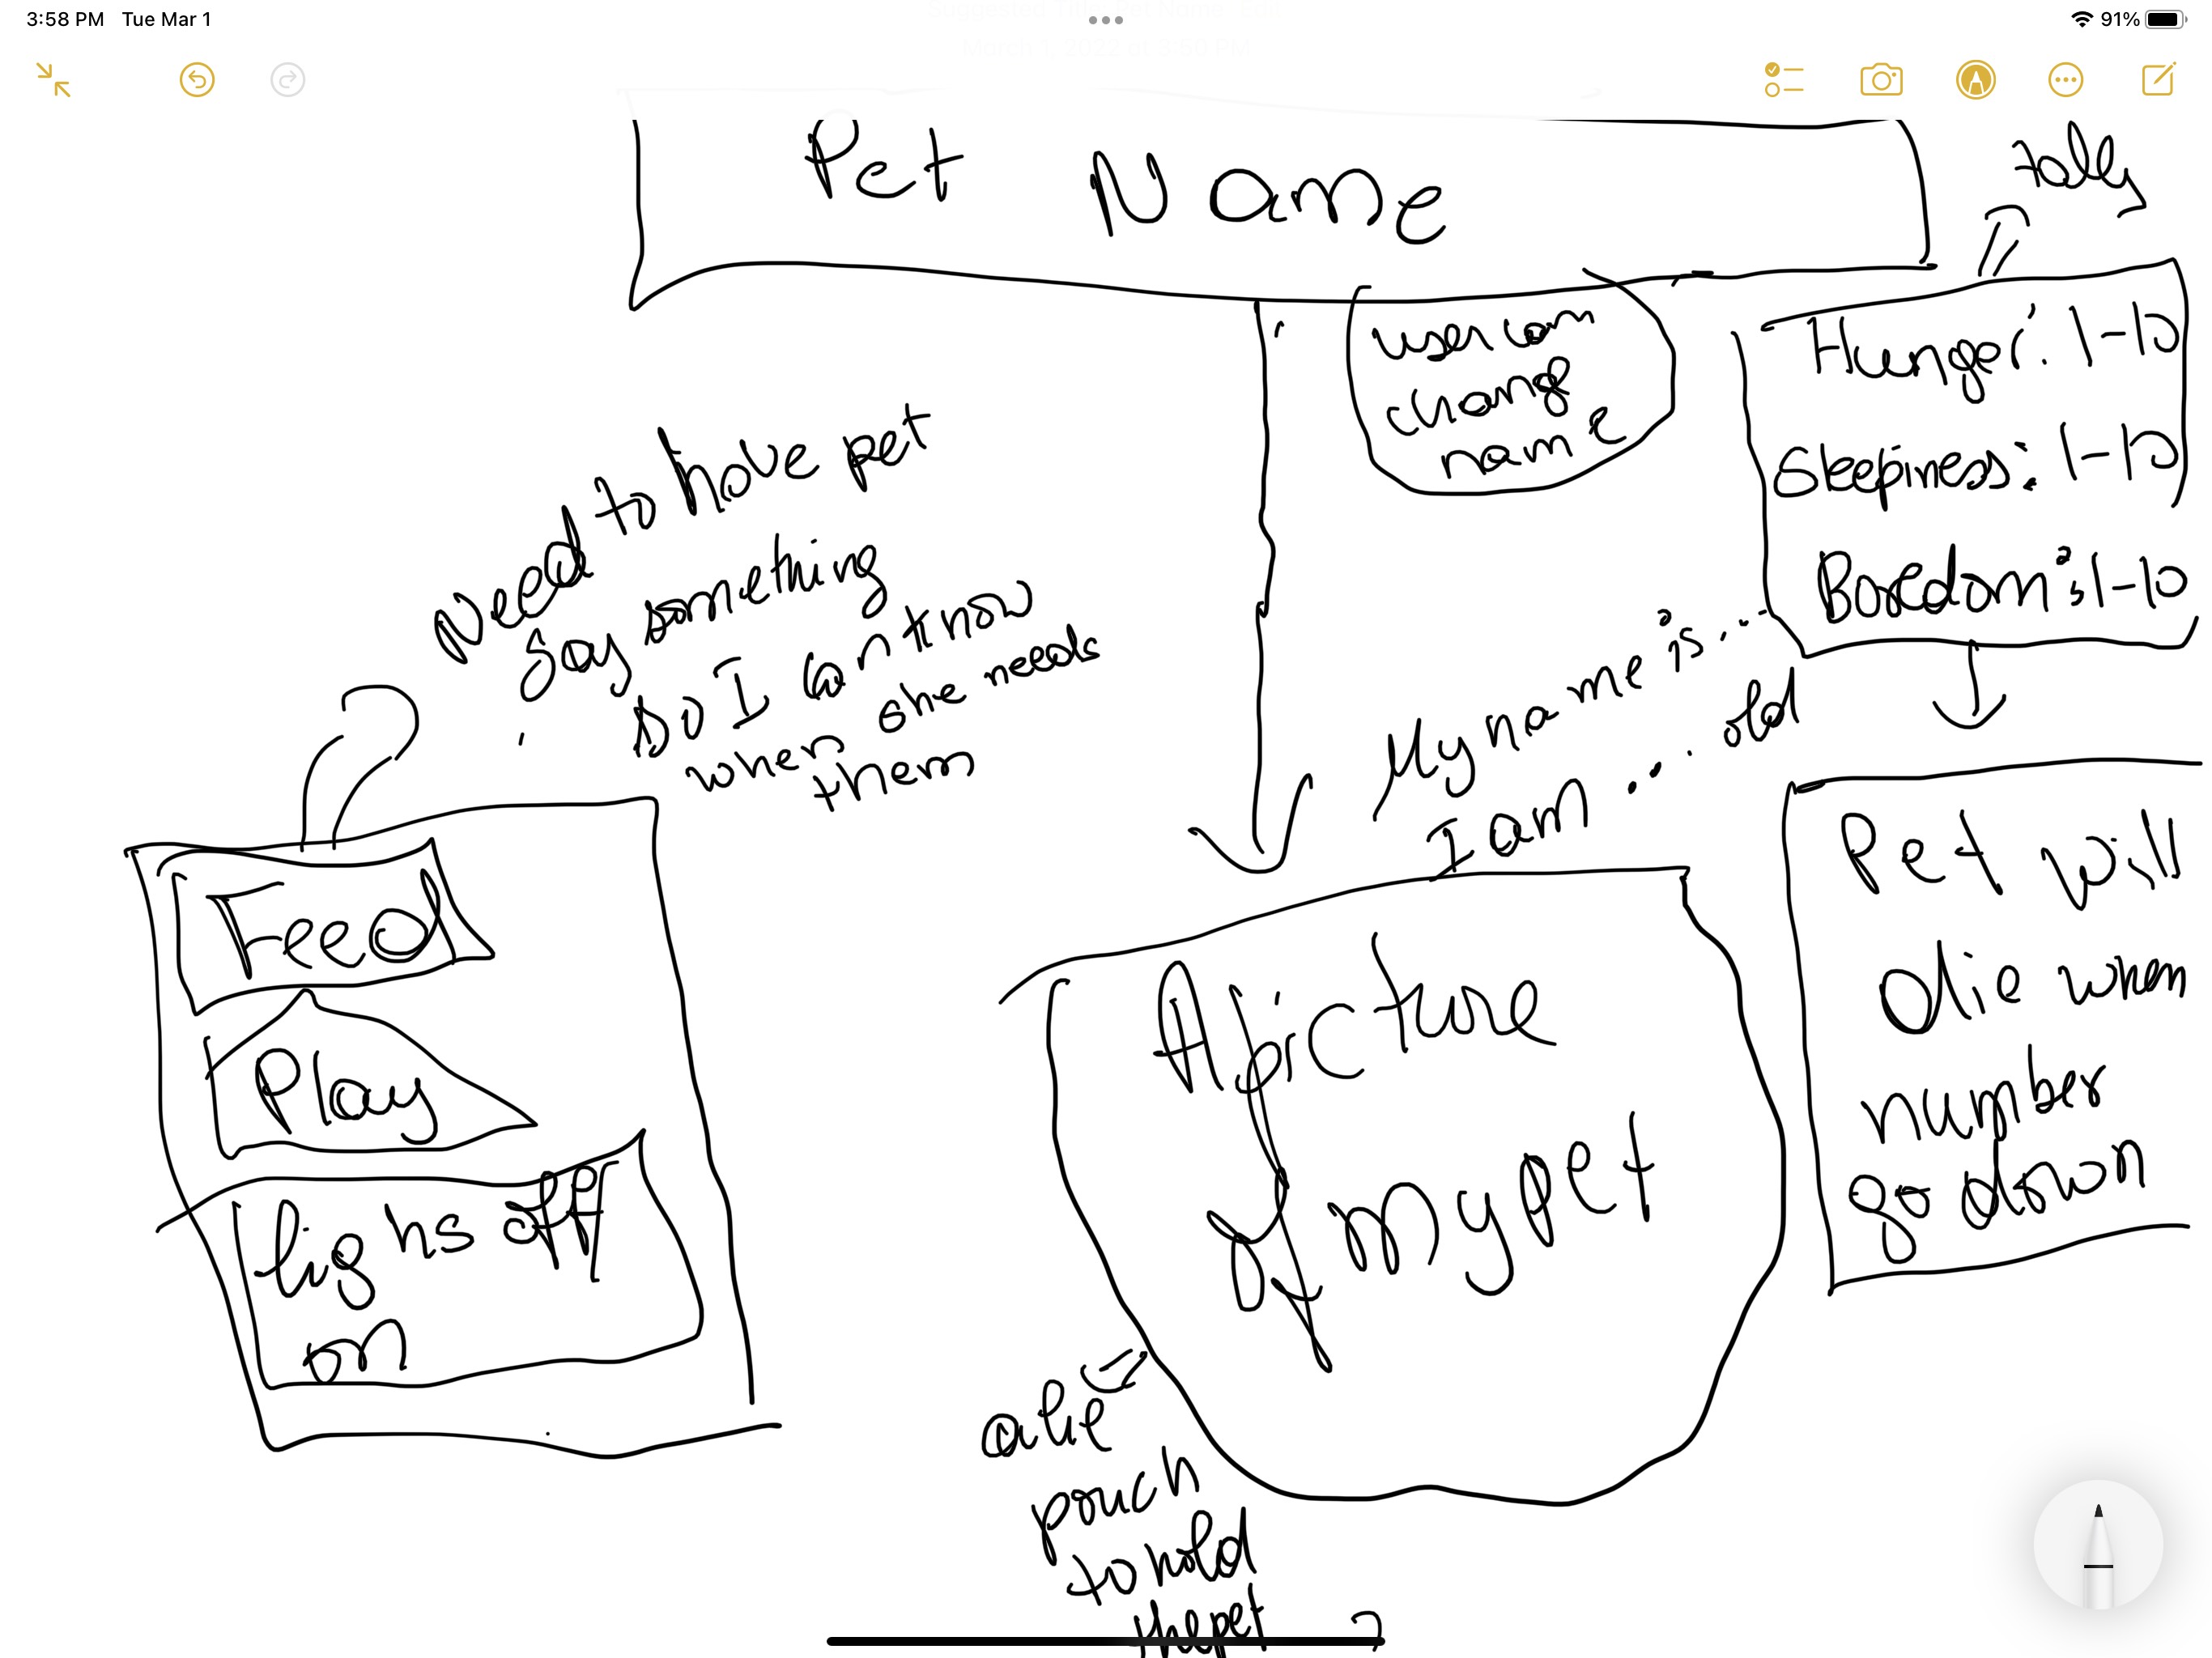 3:58 PM Tue Mar 1
91%
Pet Name
tally
user can
change
name
Hunger: 1-10
Sleepiness: 1-10
Boredom: 1-10
Need to have pet
say something
so I can know
when she needs
them
My name is...
I am ... old
Feed
Play
lighs off
on
A picture
of my pet
Pet will
die when
number
go down
pouch
to hold
the pet